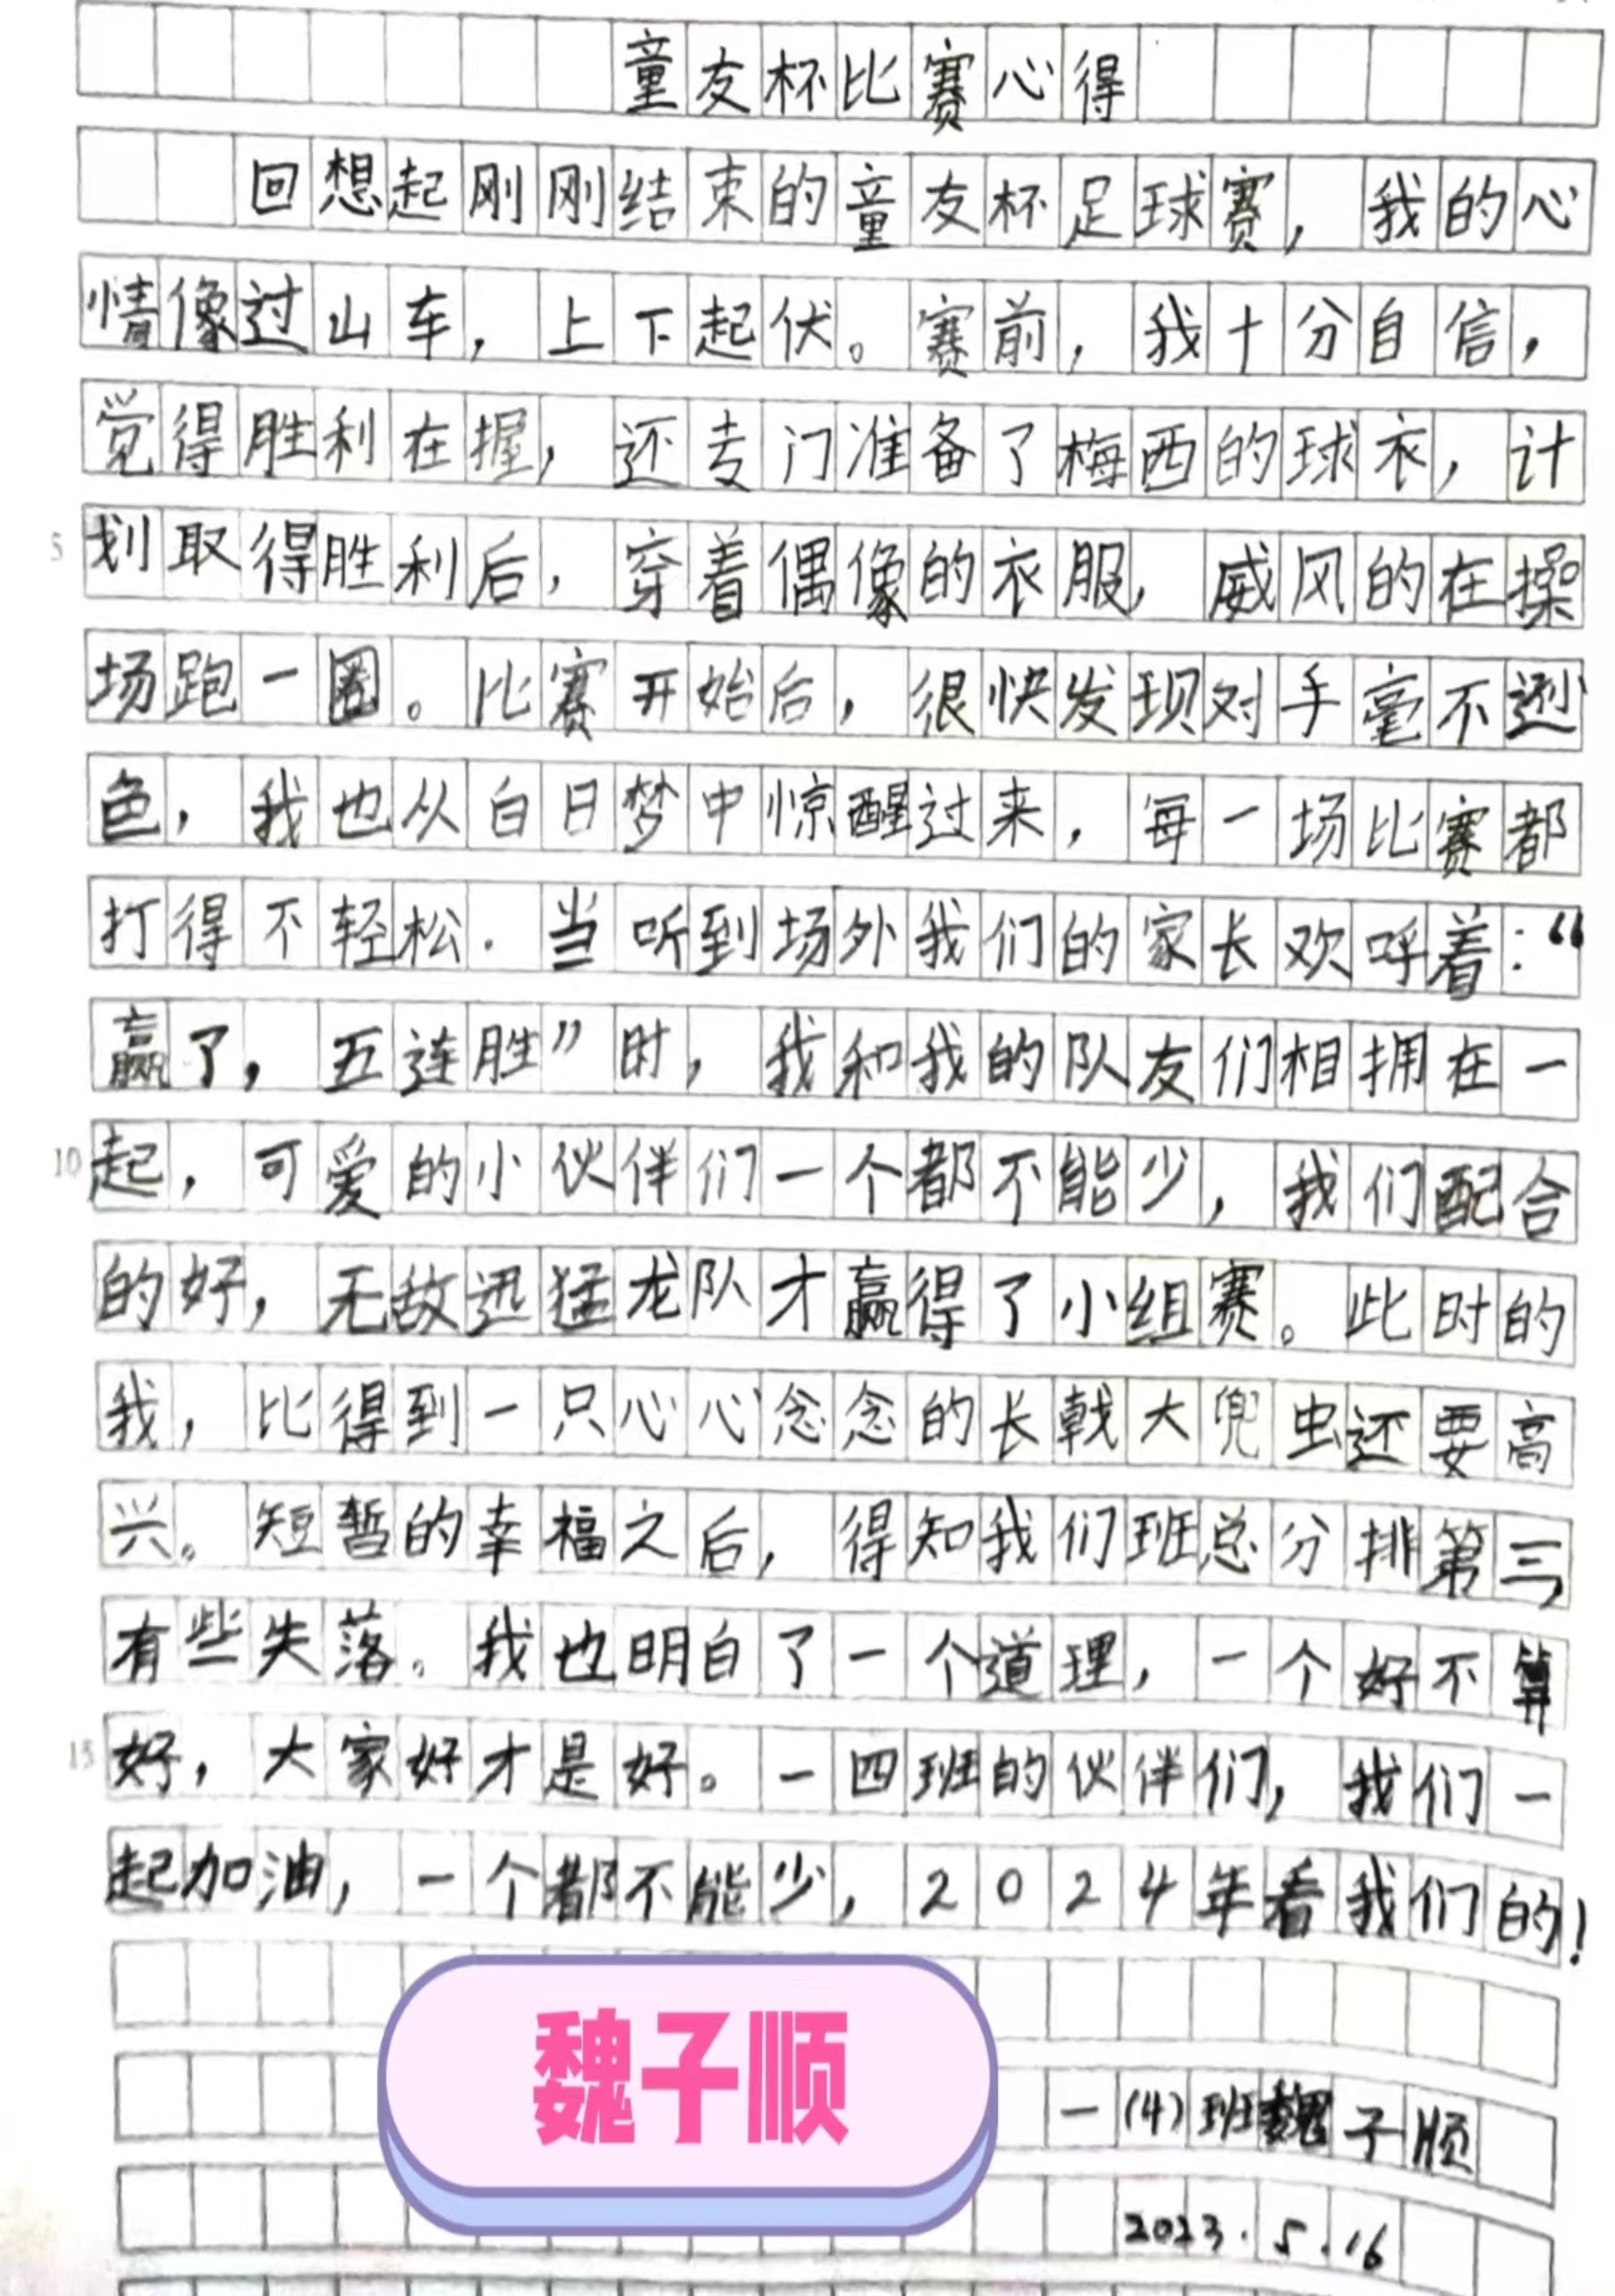 童友杯比赛心得
回想起刚刚结束的童友杯足球赛，我的心
情像过山车，上下起伏。赛前，我十分自信，
觉得胜利在握，还专门准备了梅西的球衣，计
5 划取得胜利后，穿着偶像的衣服，威风的在操
场跑一圈。比赛开始后，很快发现对手毫不逊
色，我也从白日梦中惊醒过来，每一场比赛都
打得不轻松．当听到场外我们的家长欢呼着：“
赢了，五连胜”时，我和我的队友们相拥在一
10 起，可爱的小伙伴们一个都不能少，我们配合
的好，无敌迅猛龙队才赢得了小组赛。此时的
我，比得到一只心心念念的长戟大兜虫还要高
兴。短暂的幸福之后，得知我们班总分排第三，
有些失落。我也明白了一个道理，一个好不算
15 好，大家好才是好。一四班的伙伴们，我们一
起加油，一个都不能少，2024年看我们的！
魏子顺
一(4)班魏子顺
2023.5.16